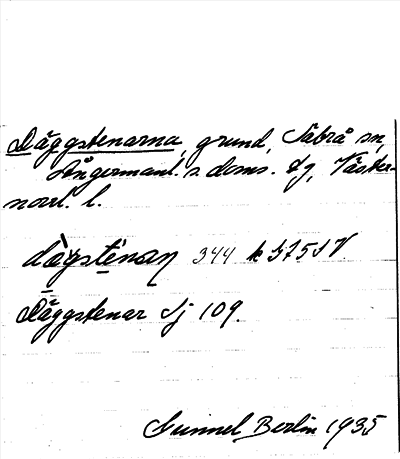 Däggstenarna, grund, Säbrå sn,
Ångermanl. s. doms. dg, Väster-
norrl. l.
dägstenan 344 k 3751 V.
Däggstenar Sj 109.
Gunnel Berlin 1935